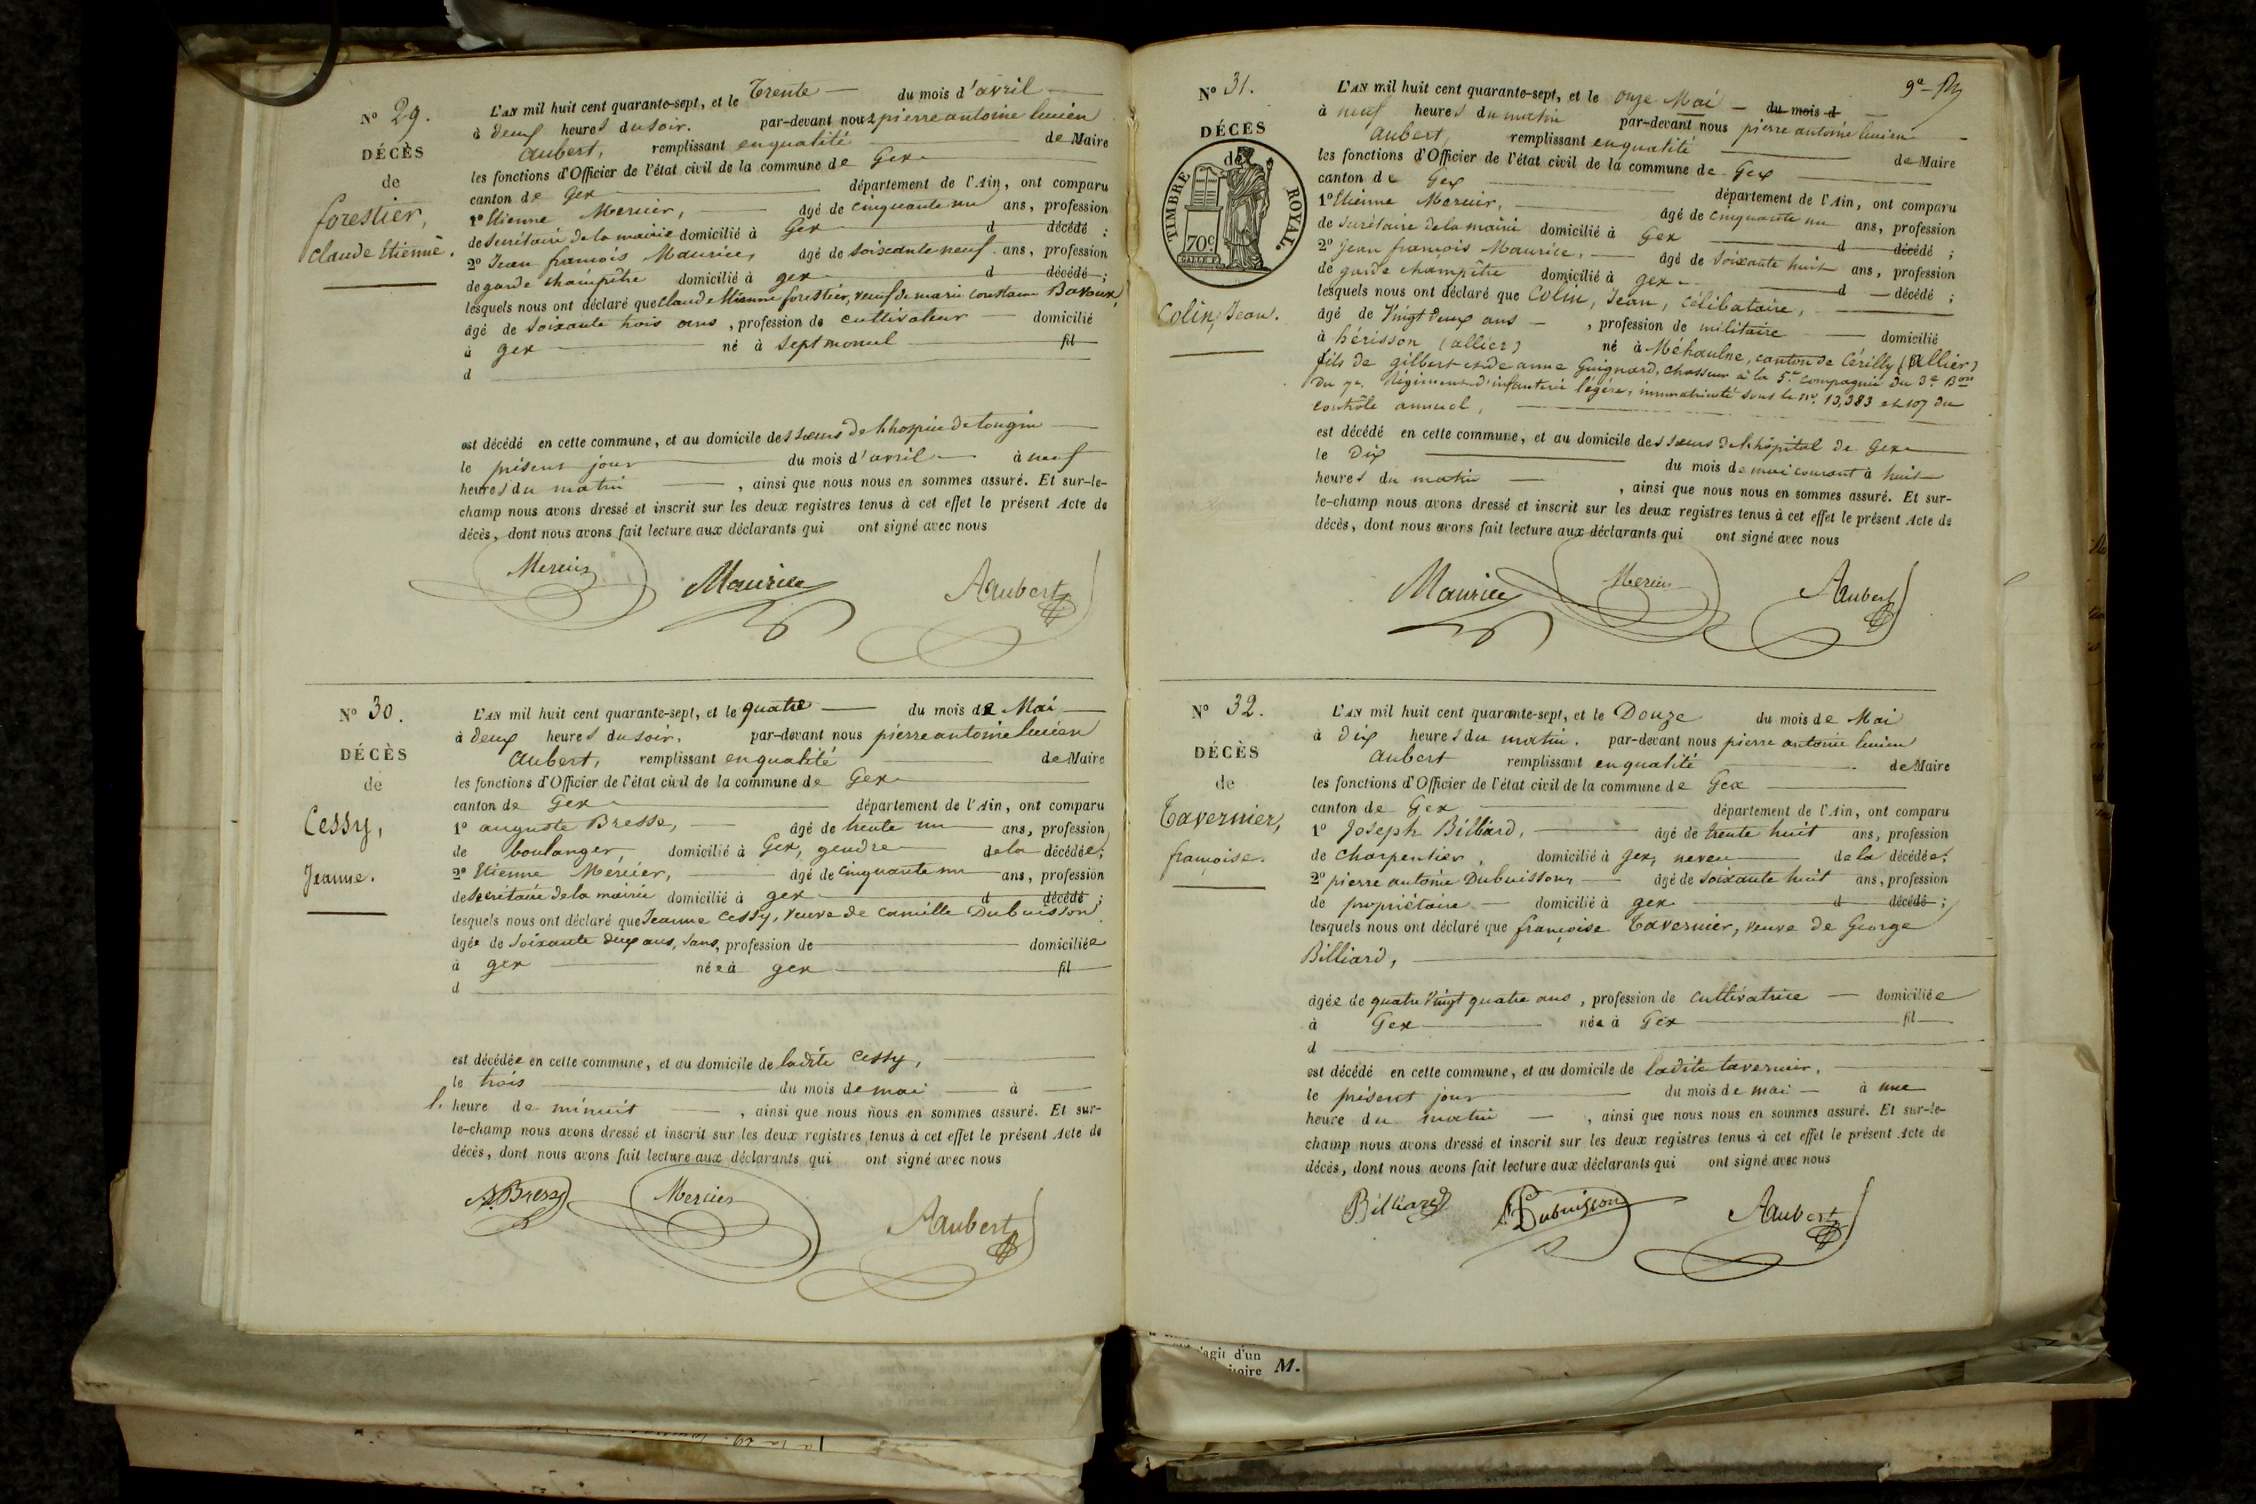 N° 29.
DÉCÈS
de
forestier,
claude Etienne.
L'AN mil huit cent quarante-sept, et le Trente — du mois d'avril —
à deux heures du soir. par-devant nous pierre antoine lucien
aubert, remplissant en qualité de Maire
les fonctions d'Officier de l'état civil de la commune de Gex
canton de Gex département de l'Ain, ont comparu
1° Etienne Mercier, âgé de cinquante un ans, profession
de secrétaire de la mairie domicilié à Gex d décédé ;
2° Jean françois Maurice, âgé de soixante neuf ans, profession
de garde champêtre domicilié à gex d décédé ;
lesquels nous ont déclaré que claude Etienne forestier, veuf de marie constance Bavoux,
âgé de soixante trois ans, profession de cultivateur — domicilié
à gex né à septmoncel fil
d
est décédé en cette commune, et au domicile des sœurs de l'hospice de tougin
le présent jour du mois d'avril à neuf
heures du matin , ainsi que nous nous en sommes assuré. Et sur-le-
champ nous avons dressé et inscrit sur les deux registres tenus à cet effet le présent Acte de
décès, dont nous avons fait lecture aux déclarants qui ont signé avec nous
Mercier Maurice Aaubert
N° 30.
DÉCÈS
de
Cessy,
Jeanne.
L'AN mil huit cent quarante-sept, et le quatre — du mois de Mai
à deux heures du soir. par-devant nous pierre antoine lucien
aubert, remplissant en qualité de Maire
les fonctions d'Officier de l'état civil de la commune de Gex
canton de Gex département de l'Ain, ont comparu
1° auguste Bresse, — âgé de trente un ans, profession
de boulanger, domicilié à Gex, gendre de la décédée;
2° Etienne Mercier, âgé de cinquante un ans, profession
de secrétaire de la mairie domicilié à gex d décédé ;
lesquels nous ont déclaré que Jeanne Cessy, veuve de camille Dubuisson
âgée de soixante deux ans, sans, profession de domiciliée
à gex née à gex fil
d
est décédée en cette commune, et au domicile de ladite Cessy,
le trois du mois de mai à
l. heure de minuit , ainsi que nous nous en sommes assuré. Et sur-
le-champ nous avons dressé et inscrit sur les deux registres tenus à cet effet le présent Acte de
décès, dont nous avons fait lecture aux déclarants qui ont signé avec nous
Bresse Mercier Aaubert
N° 31.
DÉCES
de
TIMBRE ROYAL.
70c
Colin, Jean.
9e
L'AN mil huit cent quarante-sept, et le onze Mai — du mois d
à neuf heures du matin par-devant nous pierre antoine lucien
aubert, remplissant en qualité de Maire
les fonctions d'Officier de l'état civil de la commune de Gex
canton de Gex département de l'Ain, ont comparu
1° Etienne Mercier, âgé de cinquante un ans, profession
de secrétaire de la mairie domicilié à Gex d décédé ;
2° Jean françois Maurice, — âgé de soixante huit ans, profession
de garde champêtre domicilié à gex d — décédé ;
lesquels nous ont déclaré que Colin, Jean, célibataire,
âgé de vingt deux ans — , profession de militaire — domicilié
à hérisson (allier) né à Méhaulne, canton de Cérilly (allier)
fils de gilbert et de anne Guignard, chasseur à la 5e compagnie du 3e Bon
du 7e Régiment d'infanterie légère, immatriculé sous le n° 13,383 et 107 du
contrôle annuel,
est décédé en cette commune, et au domicile des sœurs de l'hôpital de Gex
le Dix du mois de mai courant à huit
heures du matin , ainsi que nous nous en sommes assuré. Et sur-
le-champ nous avons dressé et inscrit sur les deux registres tenus à cet effet le présent Acte de
décès, dont nous avons fait lecture aux déclarants qui ont signé avec nous
Maurice Mercier Aaubert
N° 32.
DÉCÈS
de
Tavernier,
françoise.
L'AN mil huit cent quarante-sept, et le Douze du mois de Mai
à dix heures du matin. par-devant nous pierre antoine lucien
aubert remplissant en qualité de Maire
les fonctions d'Officier de l'état civil de la commune de Gex
canton de Gex département de l'Ain, ont comparu
1° Joseph Billiard, âgé de trente huit ans, profession
de charpentier, domicilié à gex, neveu de la décédée;
2° pierre antoine Dubuisson, âgé de soixante huit ans, profession
de propriétaire — domicilié à gex d décédé ;
lesquels nous ont déclaré que françoise Tavernier, veuve de George
Billiard,
âgée de quatre vingt quatre ans, profession de cultivatrice — domiciliée
à Gex née à Gex fil
d
est décédé en cette commune, et au domicile de ladite tavernier,
le présent jour du mois de mai — à une
heure du matin — , ainsi que nous nous en sommes assuré. Et sur-le-
champ nous avons dressé et inscrit sur les deux registres tenus à cet effet le présent Acte de
décès, dont nous avons fait lecture aux déclarants qui ont signé avec nous
Billiard Dubuisson Aaubert
'agit d'un
oire M.